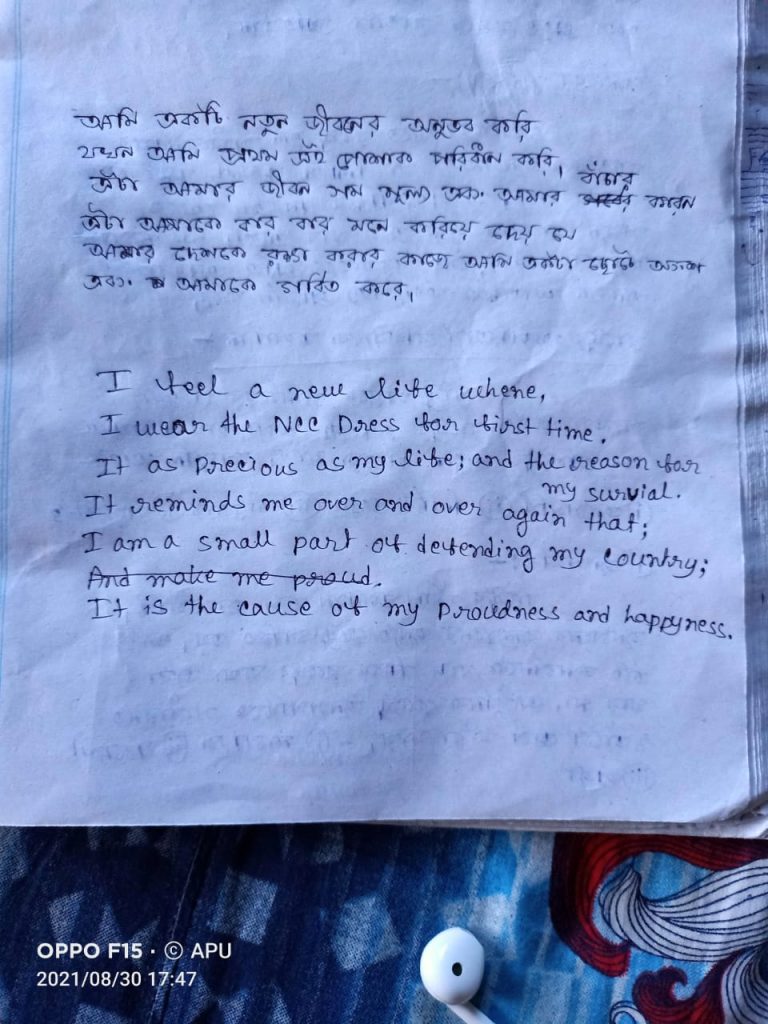 আমি একটি নতুন জীবনের অনুভব করি
যখন আমি প্রথম এই পোশাক পরিধান করি।
এটা আমার জীবন সম মূল্য এবং আমার বাঁচার কারন
এটা আমাকে বার বার মনে করিয়ে দেয় যে
আমার দেশকে রক্ষা করার কাজে আমি একটা ছোট অংশ
এবং আমাকে গর্বিত করে।
I feel a new life where,
I wear the NCC Dress for first time.
It as Precious as my life; and the reason for
my survial.
It reminds me over and over again that;
I am a small part of defending my country;
And make me proud.
It is the cause of my Proudness and happyness.
OPPO F15 · © APU
2021/08/30 17:47